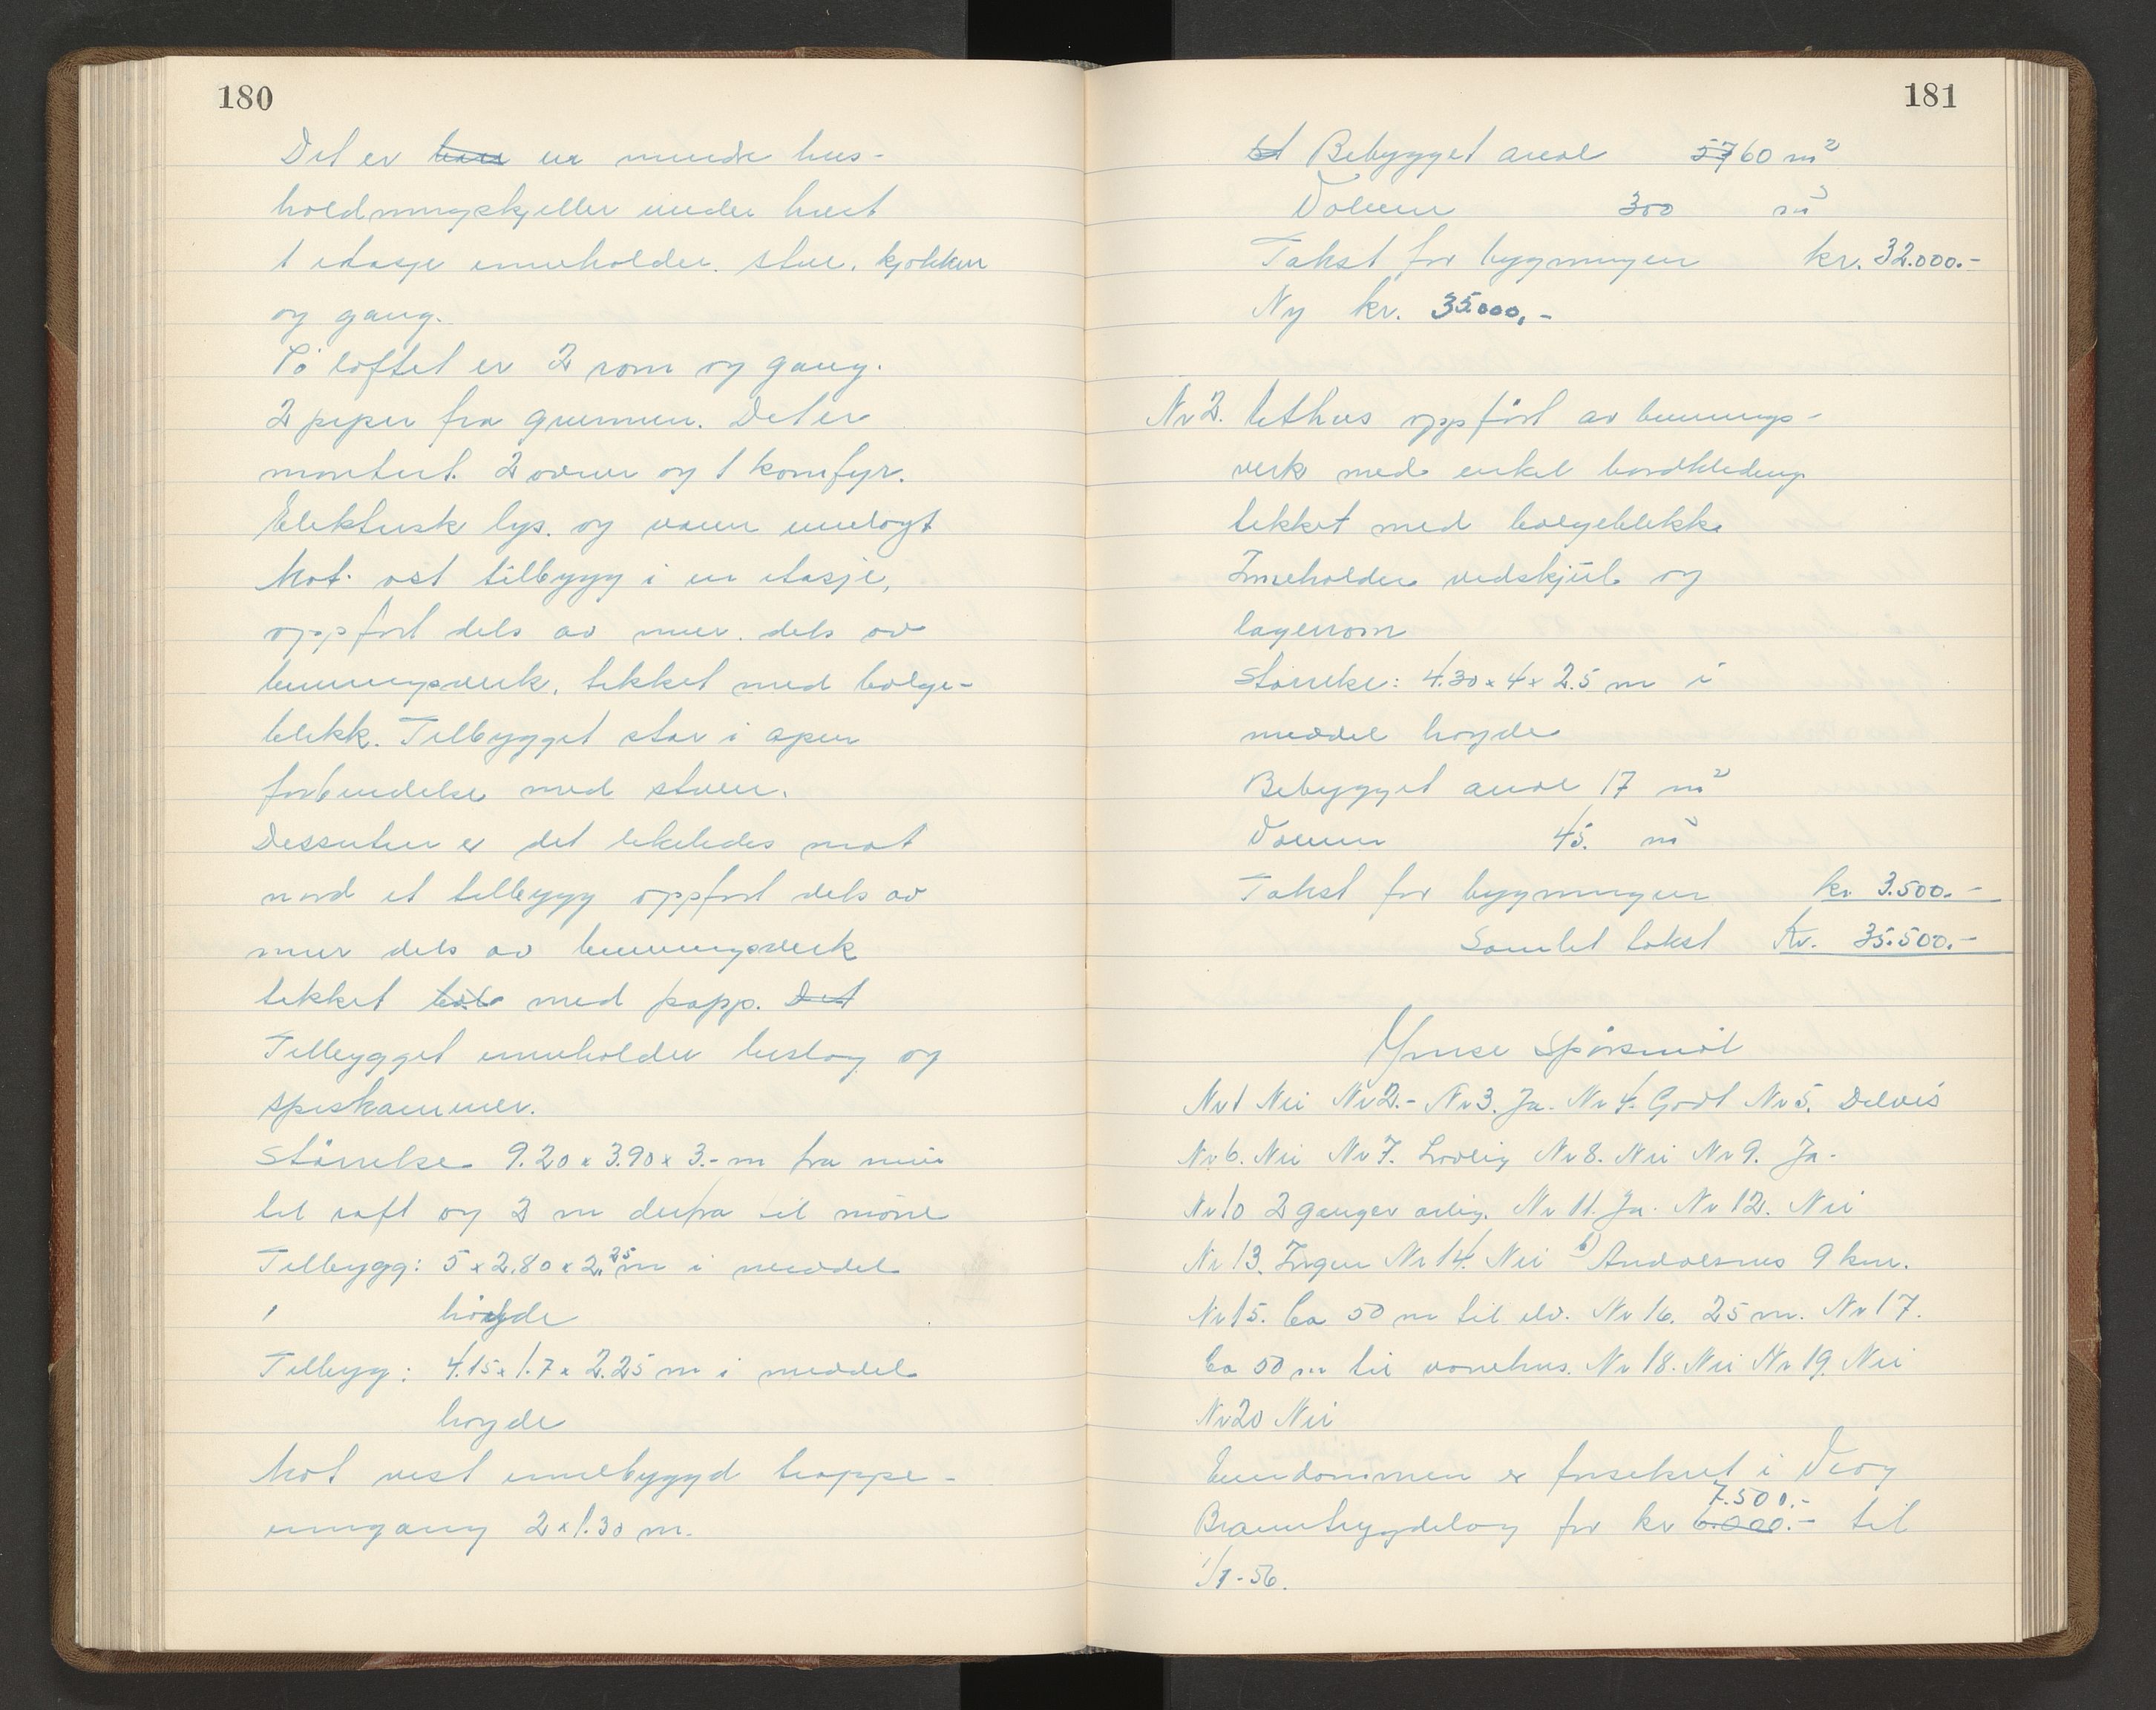 180
Det er en mindre hus-
holdningskjeller under huset
1 etasje inneholder. stue, kjøkken
og gang.
På loftet er 2 rom og gang.
2 piper fra grunnen. Det er
montert. 2 ovner og 1 komfyr.
Elektrisk lys. og vann innlagt
Mot øst tilbygg i en etasje,
oppført dels av mur. dels av
bindingsverk, tekket med bølge-
blikk. Tilbygget står i åpen
forbindelse med stuen.
Dessuten er det likeledes mot
nord et tilbygg oppført dels av
mur dels av bindingsverk
tekket med papp. Det
Tilbygget inneholder bislag og
spiskammer.
Størrelse 9.20 x 3.90 x 3.- m fra mur
til raft og 2 m derfra til møne
Tilbygg: 5 x 2.80 x 2.25 m i middel
høyde
Tilbygg: 4.15 x 1.7 x 2.25 m i middel
høyde
Mot vest innebygget trappe-
inngang 2 x 1.30 m.
181
Bebygget areal 57 60 m²
Volum 300 m³
Takst for bygningen kr. 32.000.-
Ny kr. 35000,-
Nr 2. Uthus oppført av bindings-
verk med enkel bordkledning
tekket med bølgeblikk.
Inneholder vedskjul og
lagerrom
Størrelse: 4.30 x 4 x 2.5 m i
middel høyde
Bebygget areal 17 m²
Volum 45. m³
Takst for bygningen kr. 3.500.-
Samlet takst Kr. 35.500.-
Ymse spørsmål
Nr 1 Nei Nr 2.- Nr 3. Ja. Nr 4. Godt Nr 5. Delvis
Nr 6. Nei Nr 7. Lovlig Nr 8. Nei Nr 9. Ja.
Nr 10 2 ganger årlig. Nr 11. Ja. Nr 12. Nei
Nr 13. Ingen Nr 14. Nei b) Åndalsnes 9 km.
Nr 15. Ca 50 m til elv. Nr 16. 25 m. Nr 17.
Ca 50 m til vånehus. Nr 18. Nei Nr 19. Nei
Nr 20 Nei
Eiendommen er forsikret i Veøy
7.500.-
Branntrygdelag for kr 6.000.- til
1/1-56.